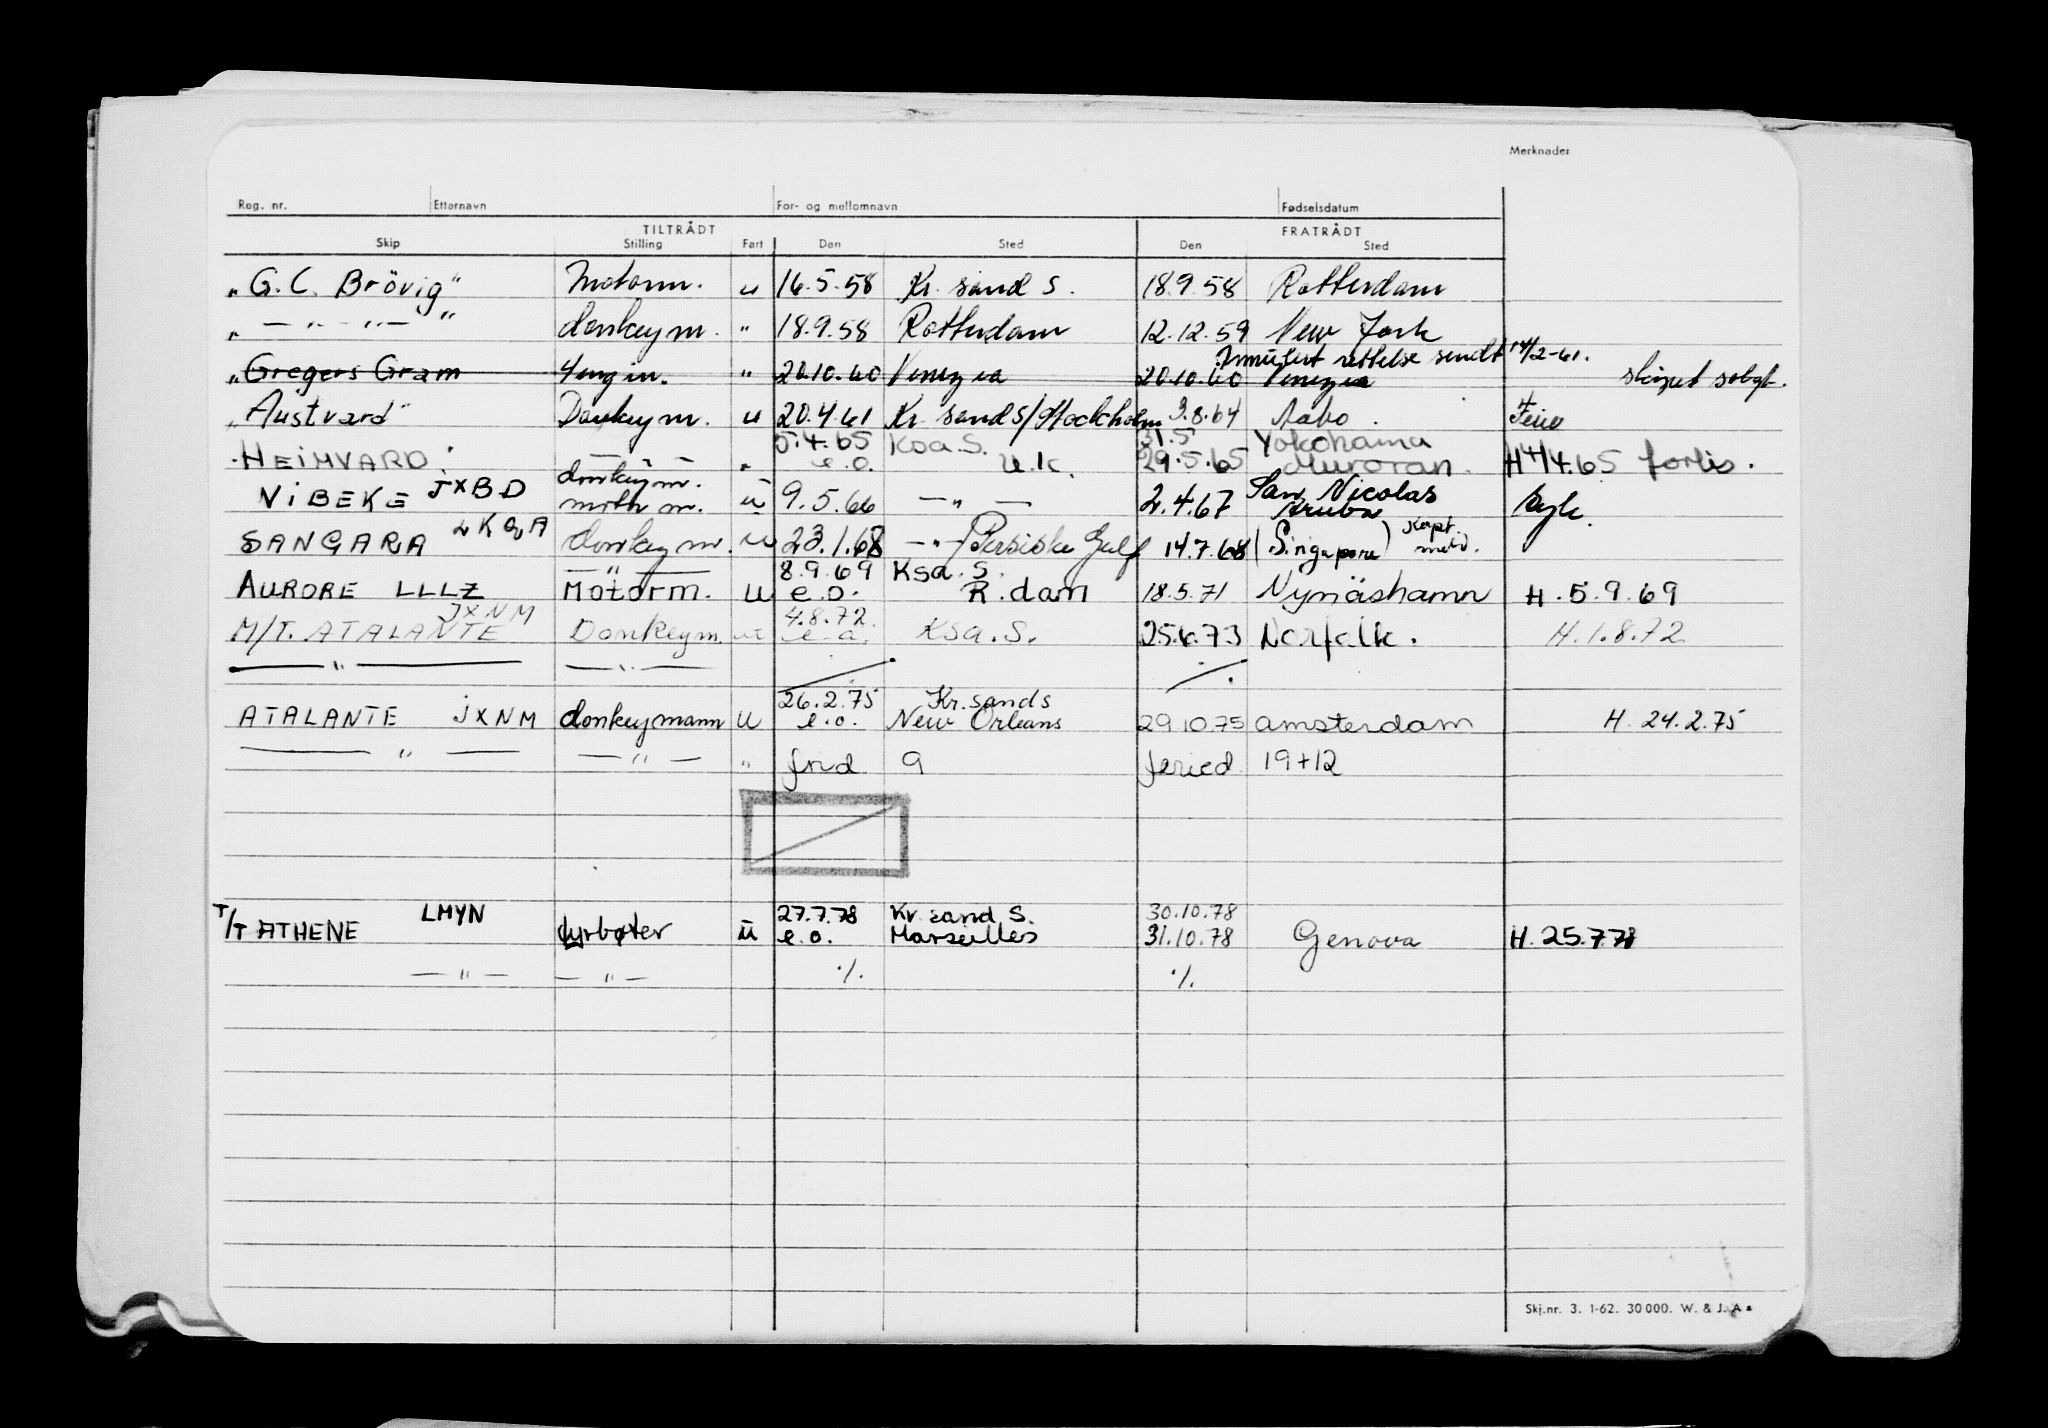 Merknader
Reg. nr. Etternavn For- og mellomnavn Fødselsdatum
TILTRÅDT FRATRÅDT
Skip Stilling Fart Den Sted Den Sted
„G.C. Brövig" Motorm. u 16.5.58 Kr. sand S. 18.9.58 Rotterdam
„ — " — " — " donkeym. " 18.9.58 Rotterdam 12.12.59 New York
rettelse sendt 14/2-61.
„Gregers Gram " 20.10.60 Venezia 20.10.60 Venezia skipet solgt.
„Austvard" Donkeym. u 20.4.61 Kr. sand S/Stockholm 3.8.64 Aabo. Ferie
5.4.65 Ksa. S. 31.5 Yokohama
HEIMVARD — " — " e.o. U.K. 29.5.65 Muroran. H 4/4.65 forlis.
donkeym. San Nicolas
VIBEKE JXBD moth m. u 9.5.66 — " — 2.4.67 Aruba syk.
SANGARA LKQA donkeym. u 23.1.68 — " — Persiske Gulf 14.7.68 (Singapore) Kapt. meld.
— " — 8.9.69 Ksa. S.
AURORE LLLZ Motorm. U e.o. R.dam 18.5.71 Nynäshamn H. 5.9.69
JXNM 4.8.72.
M/T. ATALANTE Donkeym. u e.o. Ksa. S. 25.6.73 Norfolk. H. 1.8.72
— " — — " — ./. ./.
26.2.75 Kr.sand S
ATALANTE JXNM donkeymann U e.o. New Orleans 29.10.75 Amsterdam H. 24.2.75
— " — — " — " frid 9 feried 19+12
LMYN 27.7.78 Kr. sand S. 30.10.78
T/T ATHENE fyrbøter ü e.o. Marseilles 31.10.78 Genova H. 25.7.78
— " — — " — ./. ./.
Skj.nr. 3. 1-62. 30 000. W. & J. A